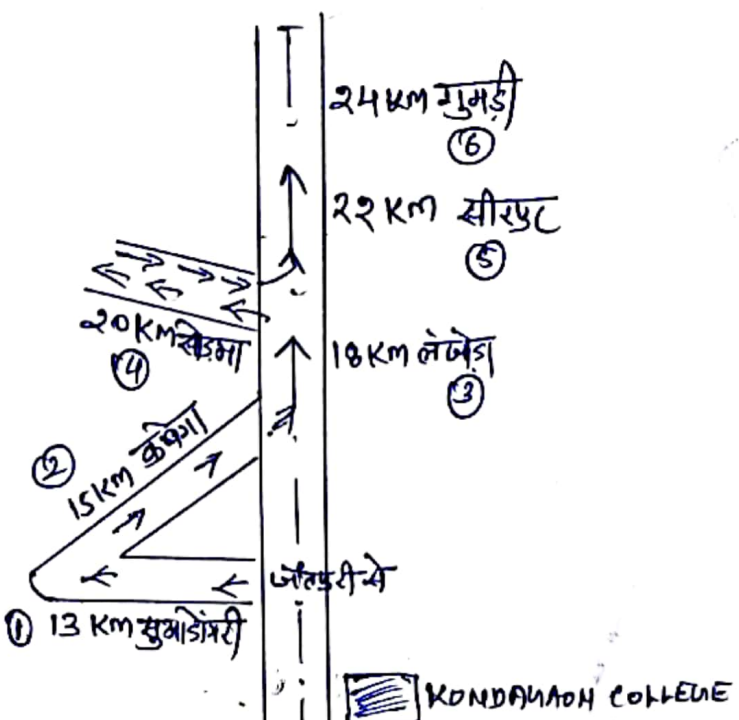 24 Km गुमड़ी
⑥
22 Km सीरपुट
⑤
20 Km
④
18 Km लंजोड़ा
③
②
15 Km
जोंतपुरी से
① 13 Km
KONDAGAON COLLEGE